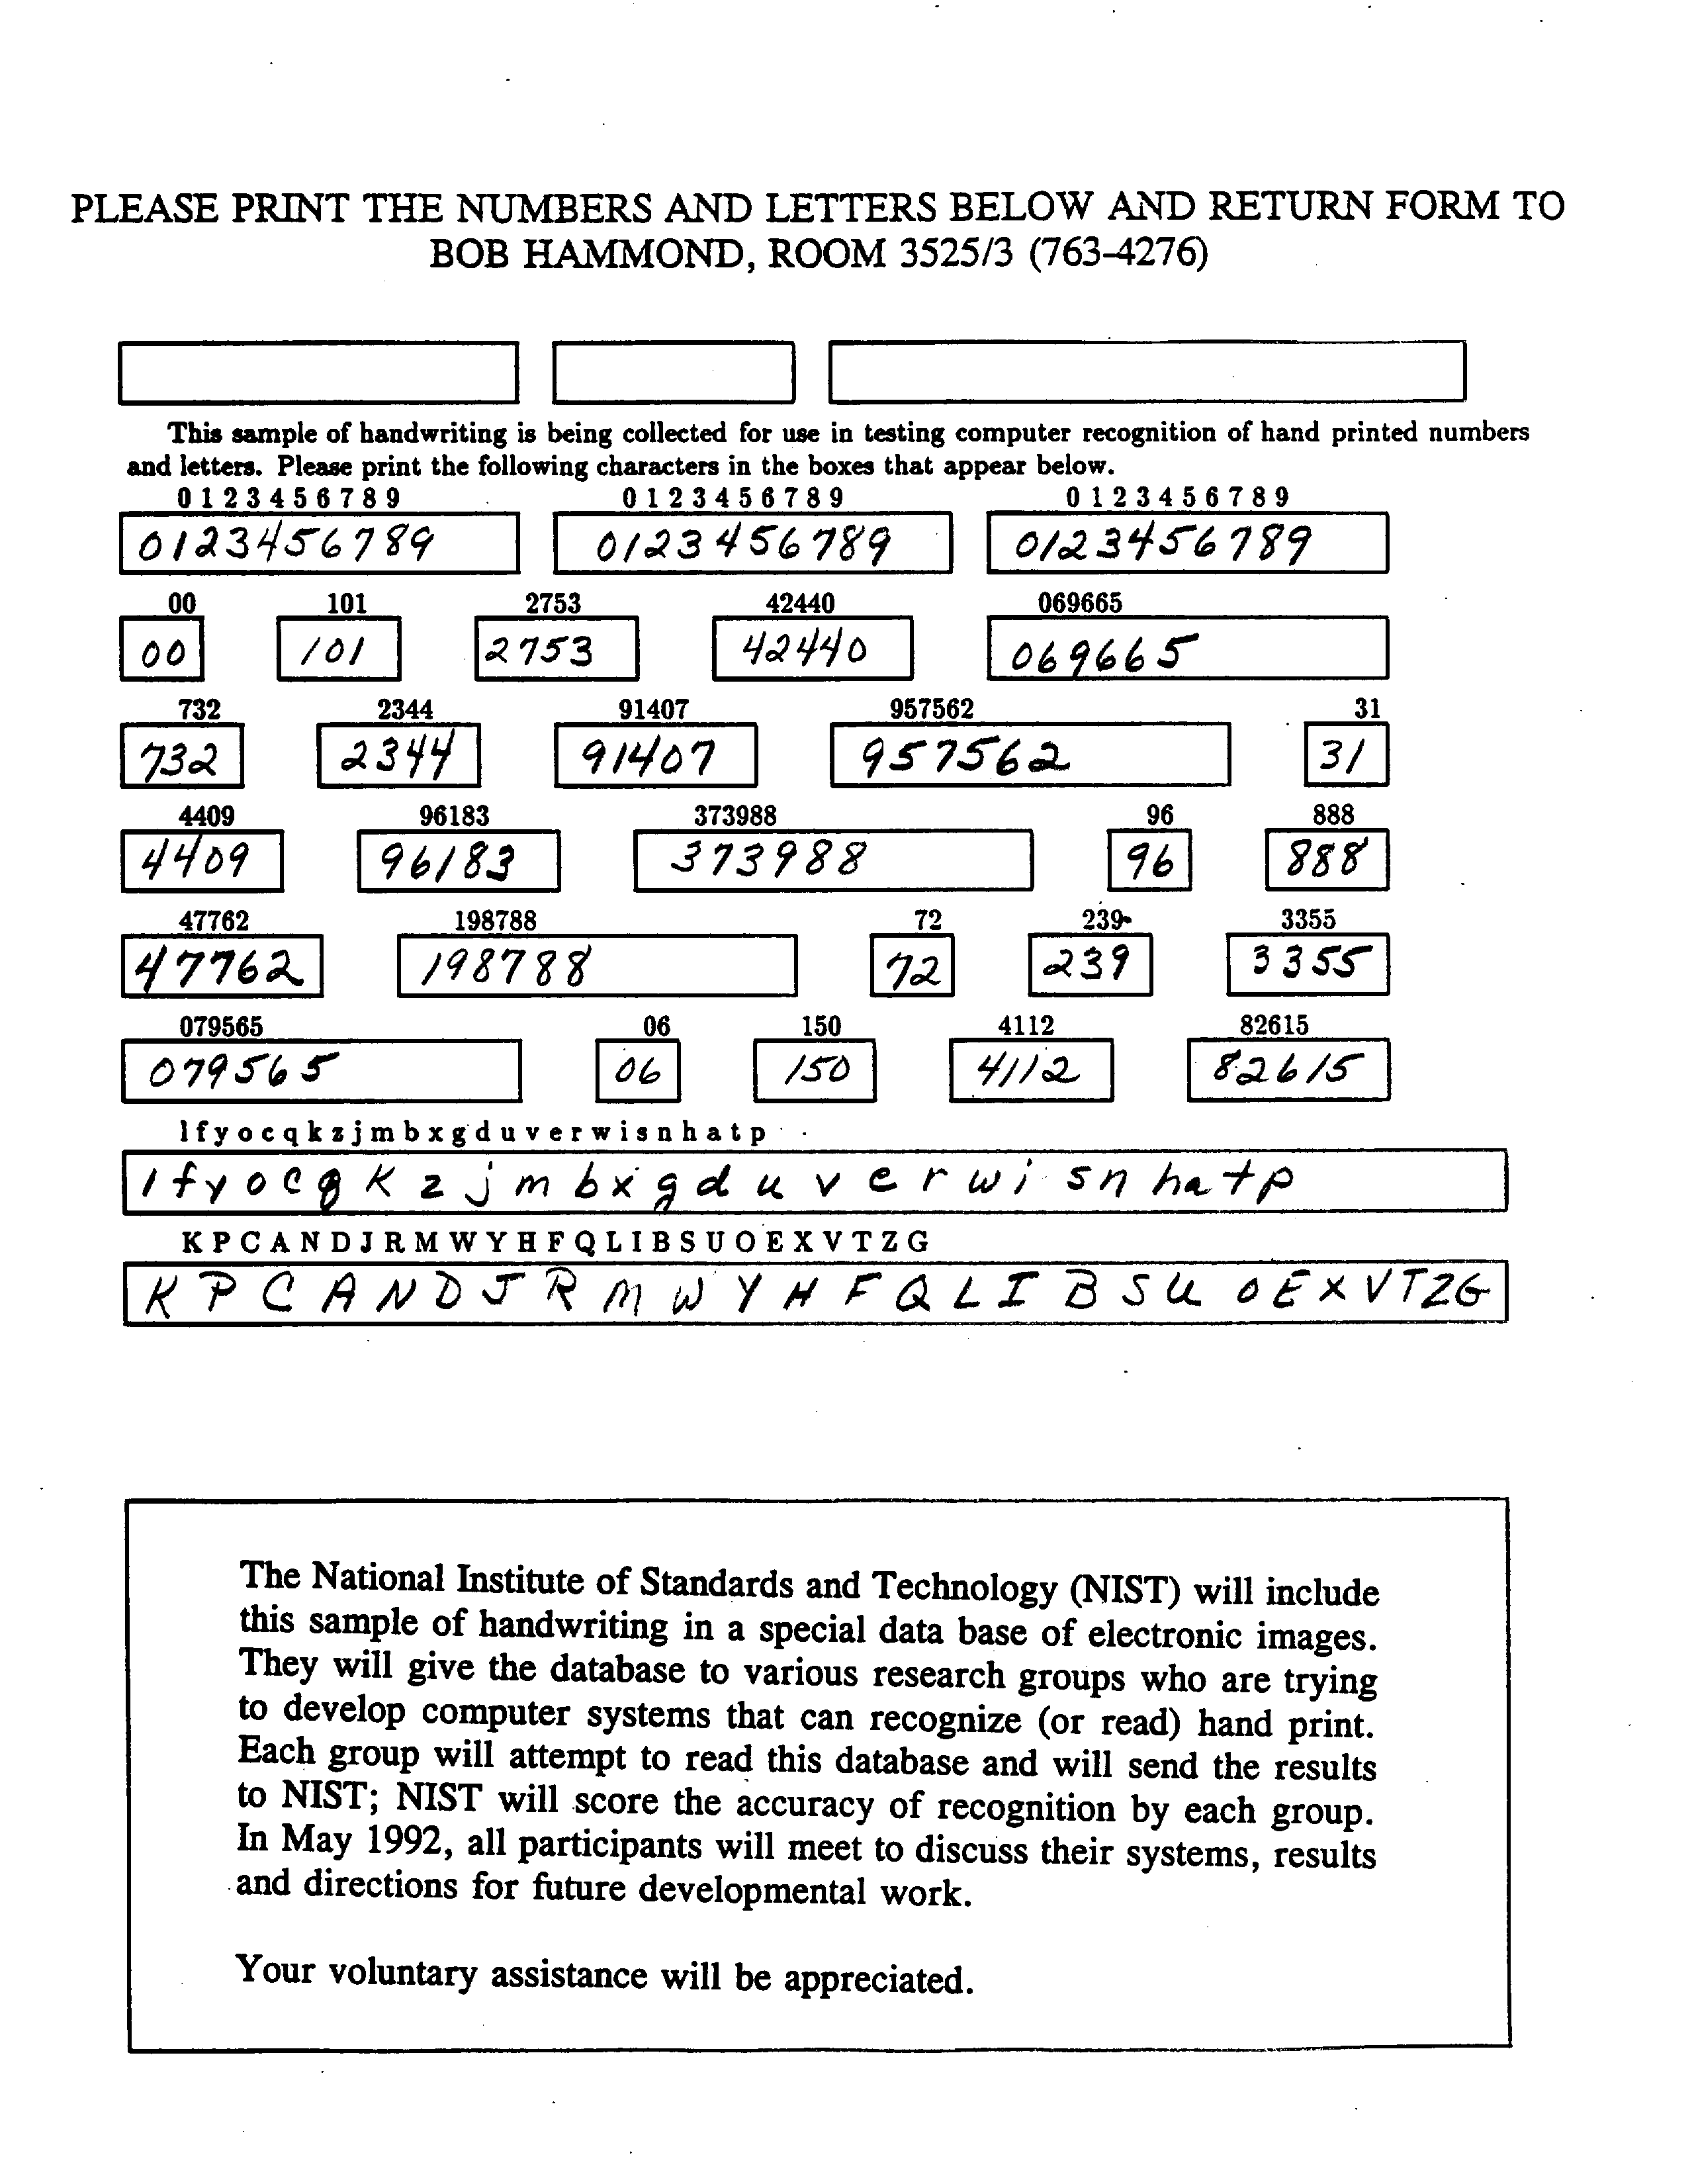 PLEASE PRINT THE NUMBERS AND LETTERS BELOW AND RETURN FORM TO
BOB HAMMOND, ROOM 3525/3 (763-4276)
This sample of handwriting is being collected for use in testing computer recognition of hand printed numbers
and letters. Please print the following characters in the boxes that appear below.
0 1 2 3 4 5 6 7 8 9 0 1 2 3 4 5 6 7 8 9 0 1 2 3 4 5 6 7 8 9
0123456789 0123456789 0123456789
00 101 2753 42440 069665
00 101 2753 42440 069665
732 2344 91407 957562 31
732 2344 91407 957562 31
4409 96183 373988 96 888
4409 96183 373988 96 888
47762 198788 72 239 3355
47762 198788 72 239 3355
079565 06 150 4112 82615
079565 06 150 4112 82615
l f y o c q k z j m b x g d u v e r w i s n h a t p
l f y o c q k z j m b x g d u v e r w i s n h a t p
K P C A N D J R M W Y H F Q L I B S U O E X V T Z G
K P C A N D J R M W Y H F Q L I B S U O E X V T Z G
The National Institute of Standards and Technology (NIST) will include
this sample of handwriting in a special data base of electronic images.
They will give the database to various research groups who are trying
to develop computer systems that can recognize (or read) hand print.
Each group will attempt to read this database and will send the results
to NIST; NIST will score the accuracy of recognition by each group.
In May 1992, all participants will meet to discuss their systems, results
and directions for future developmental work.
Your voluntary assistance will be appreciated.